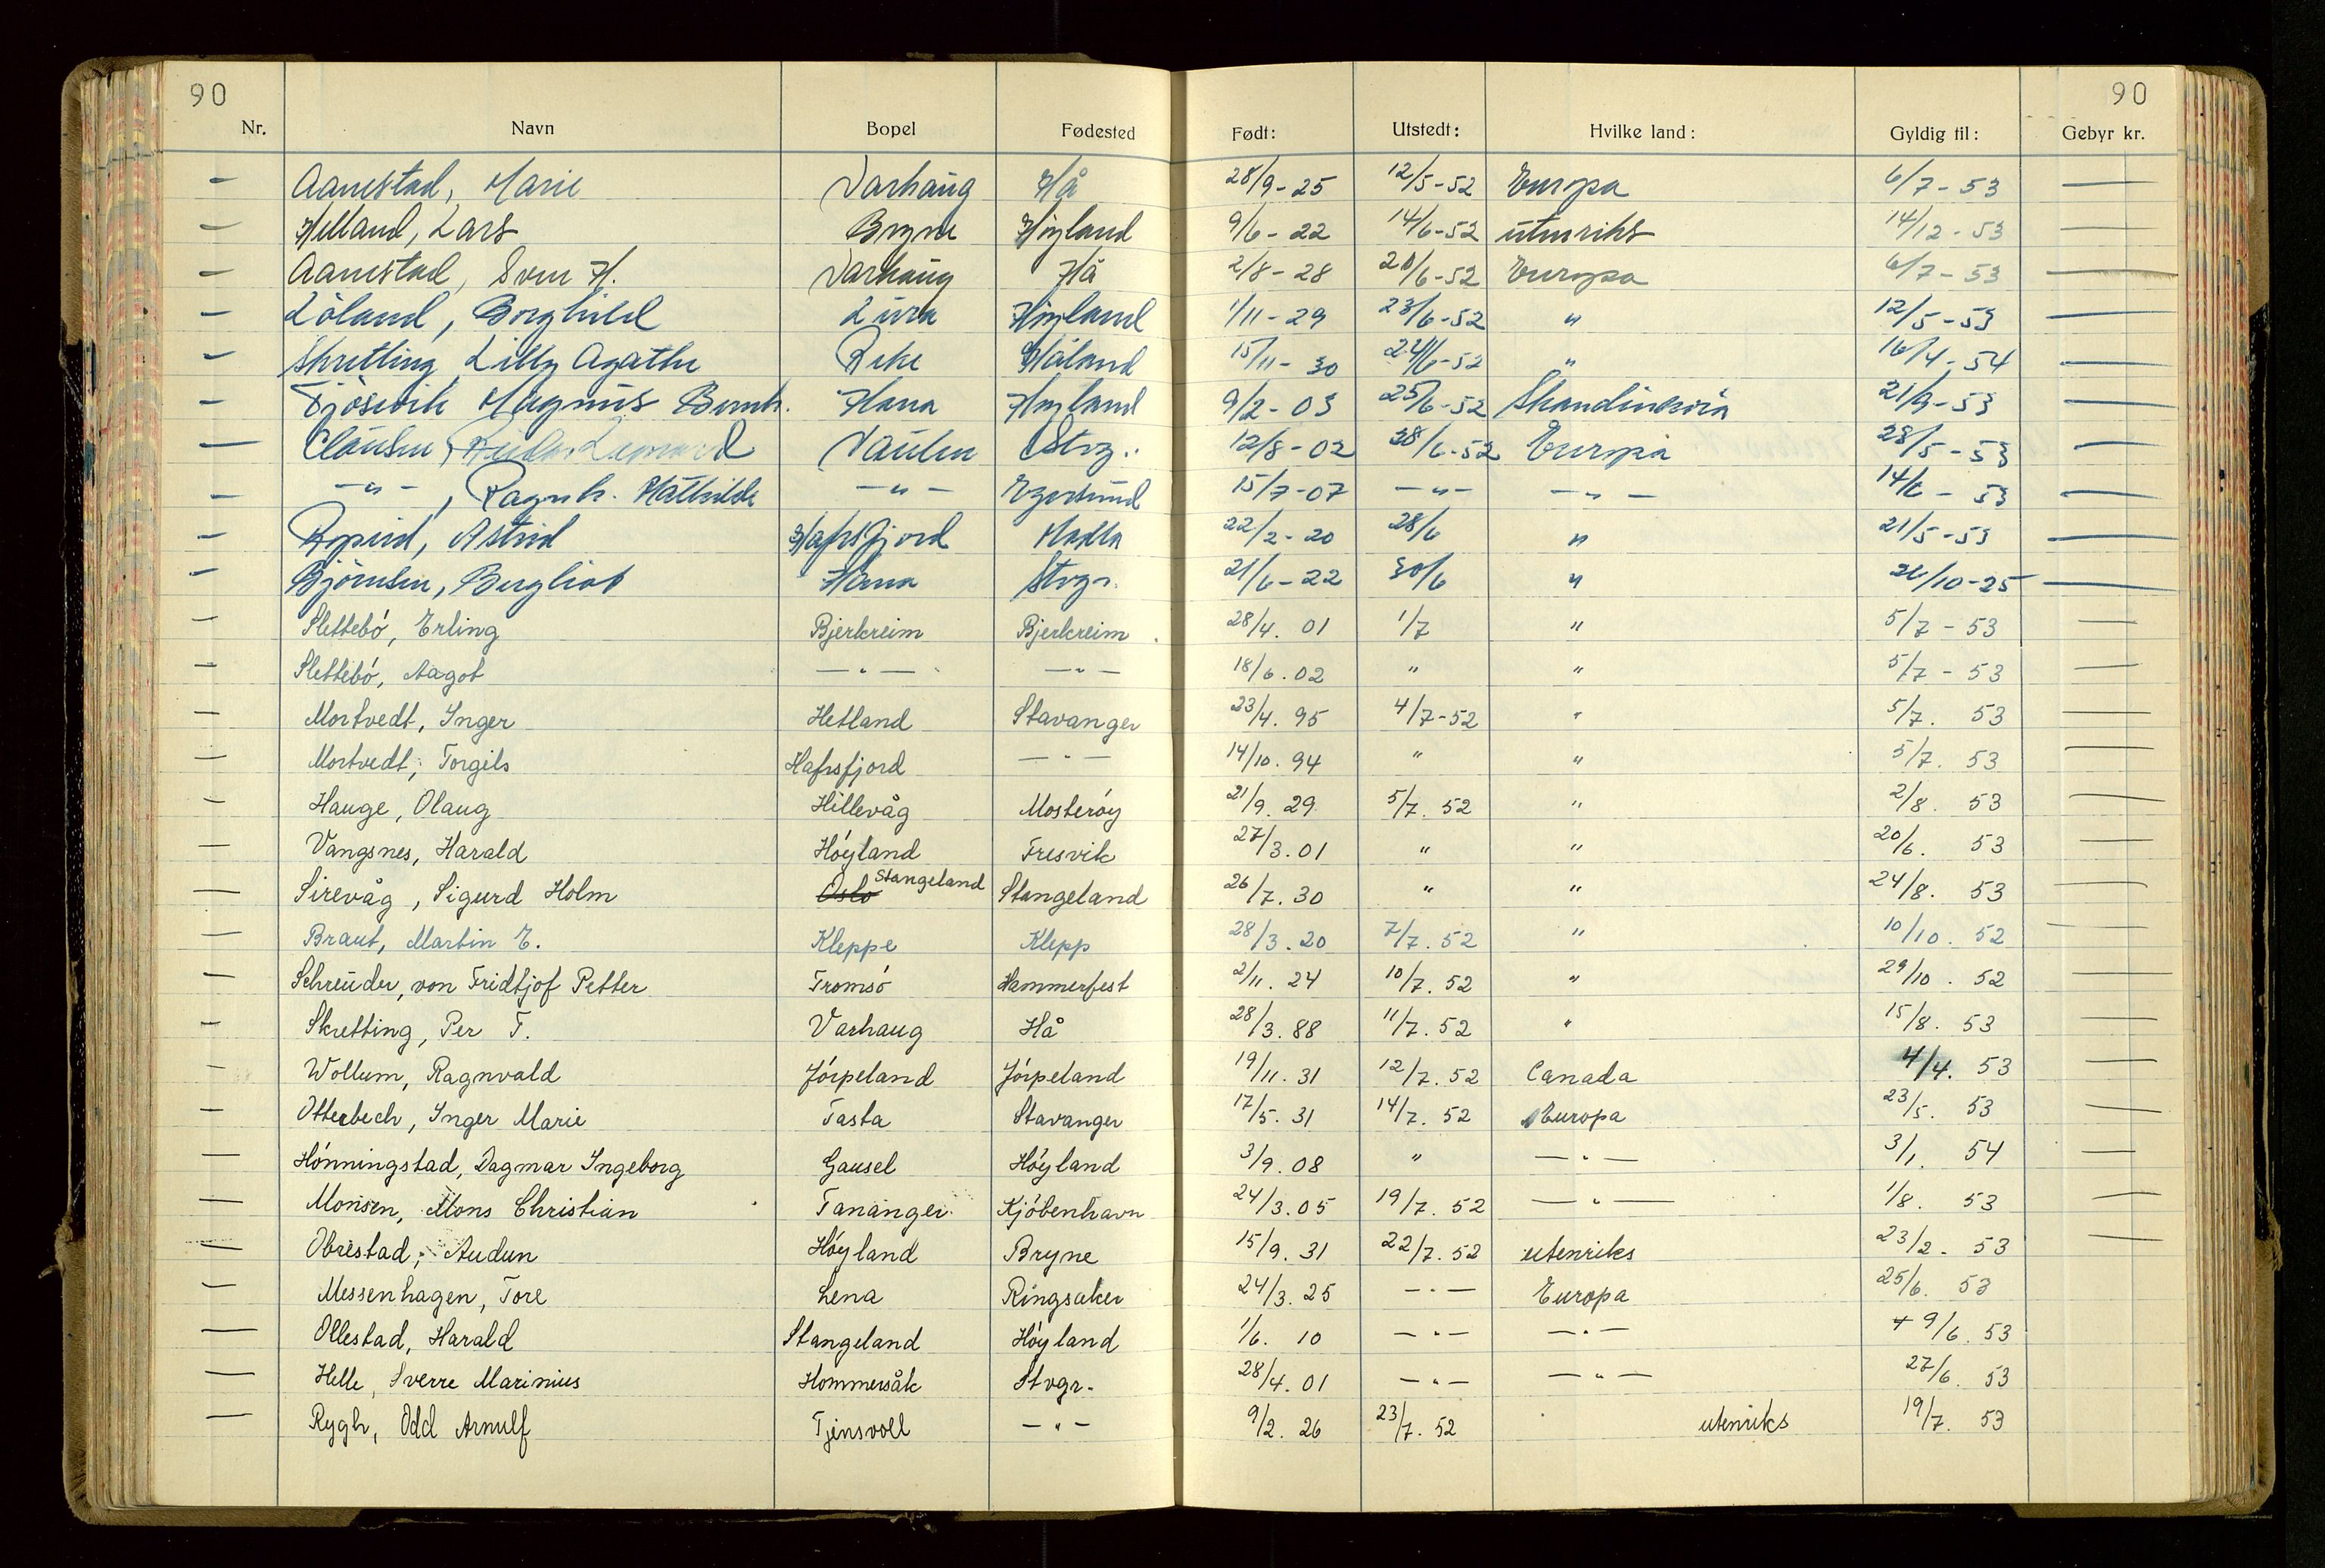 90 90
Nr. Navn Bopel Fødested Født: Utstedt: Hvilke land: Gyldig til: Gebyr kr.
— Aanestad, Marie Varhaug Hå 28/9-25 12/5-52 Europa 6/7-53 —
— Helland, Lars Bryne Høyland 9/6-22 14/6-52 utenriks 14/12-53 —
— Aanestad, Sven H. Varhaug Hå 2/8-28 20/6-52 Europa 6/7-53 —
— Löland, Borghild Lura Høyland 1/11-29 23/6-52 " 12/5-53 —
— Skretting Lilly Agathe Reke Håland 15/11-30 24/6-52 " 16/4-54 —
— Fjösvik Magnus Bernh. Hana Høyland 9/2-03 25/6-52 Skandinavia 21/9-53 —
— Clausen, Reidar Leonard Vaulen Stvg.. 12/8-02 28/6-52 Europa 28/5-53 —
— -"-, Ragnh. Mathilde -"- Egersund 15/7-07 -"- -"- 14/6-53 —
— Astrid Hafrsfjord Madla 22/2-20 28/6 " 21/5-53 —
— Björnsen, Bergliot Hana Stvgr. 21/6-22 30/6 " 26/10-25 —
— Slettebó, Erling Bjerkreim Bjerkreim 28/4. 01 1/7 " 5/7-53 —
— Slettebó, Aagot -"- -"- 18/6. 02 " " 5/7-53 —
— Mortvedt, Inger Hetland Stavanger 23/4. 95 4/7-52 " 5/7. 53 —
— Mortvedt, Torgils Hafrsfjord -"- 14/10. 94 " " 5/7. 53 —
— Hauge, Olaug Hillevåg Mosteröy 21/9. 29 5/7. 52 " 2/8. 53 —
— Vangsnes, Harald Höyland Fresvik 27/3. 01 " " 20/6. 53 —
— Sirevåg, Sigurd Holm Oslo Stangeland Stangeland 26/7. 30 " " 24/8. 53 —
— Braut, Martin E. Kleppe Klepp 28/3. 20 7/7. 52 " 10/10. 52 —
— Schreuder, von Fridtjof Petter Tromsó Hammerfest 2/11. 24 10/7. 52 " 29/10. 52 —
— Skretting, Per T. Varhaug Hå 28/3. 88 11/7. 52 " 15/8. 53 —
— Wollum, Ragnvald Jórpeland Jórpeland 19/11. 31 12/7. 52 Canada 4/4. 53 —
— Otterbech, Inger Marie Tasta Stavanger 17/5. 31 14/7. 52 Europa 23/5. 53 —
— Hónningstad, Dagmar Ingeborg Gausel Höyland 3/9. 08 " -"- 3/1. 54 —
— Monsen, Mons Christian Tananger Kjóbenhavn 24/3. 05 19/7. 52 -"- 1/8. 53 —
— Obrestad, Audun Höyland Bryne 15/9. 31 22/7. 52 utenriks 23/2. 53 —
— Messenhagen, Tore Lena Ringsaker 24/3. 25 -"- Europa 25/6. 53
— Ollestad, Harald Stangeland Höyland 1/6. 10 -"- -"- 9/6. 53
— Helle, Sverre Marinius Hommersåk Stvgr. 28/4. 01 -"- -"- 27/6. 53
— Rygh, Odd Arnulf Tjensvoll -"- 9/2. 26 23/7. 52 utenriks 19/7. 53